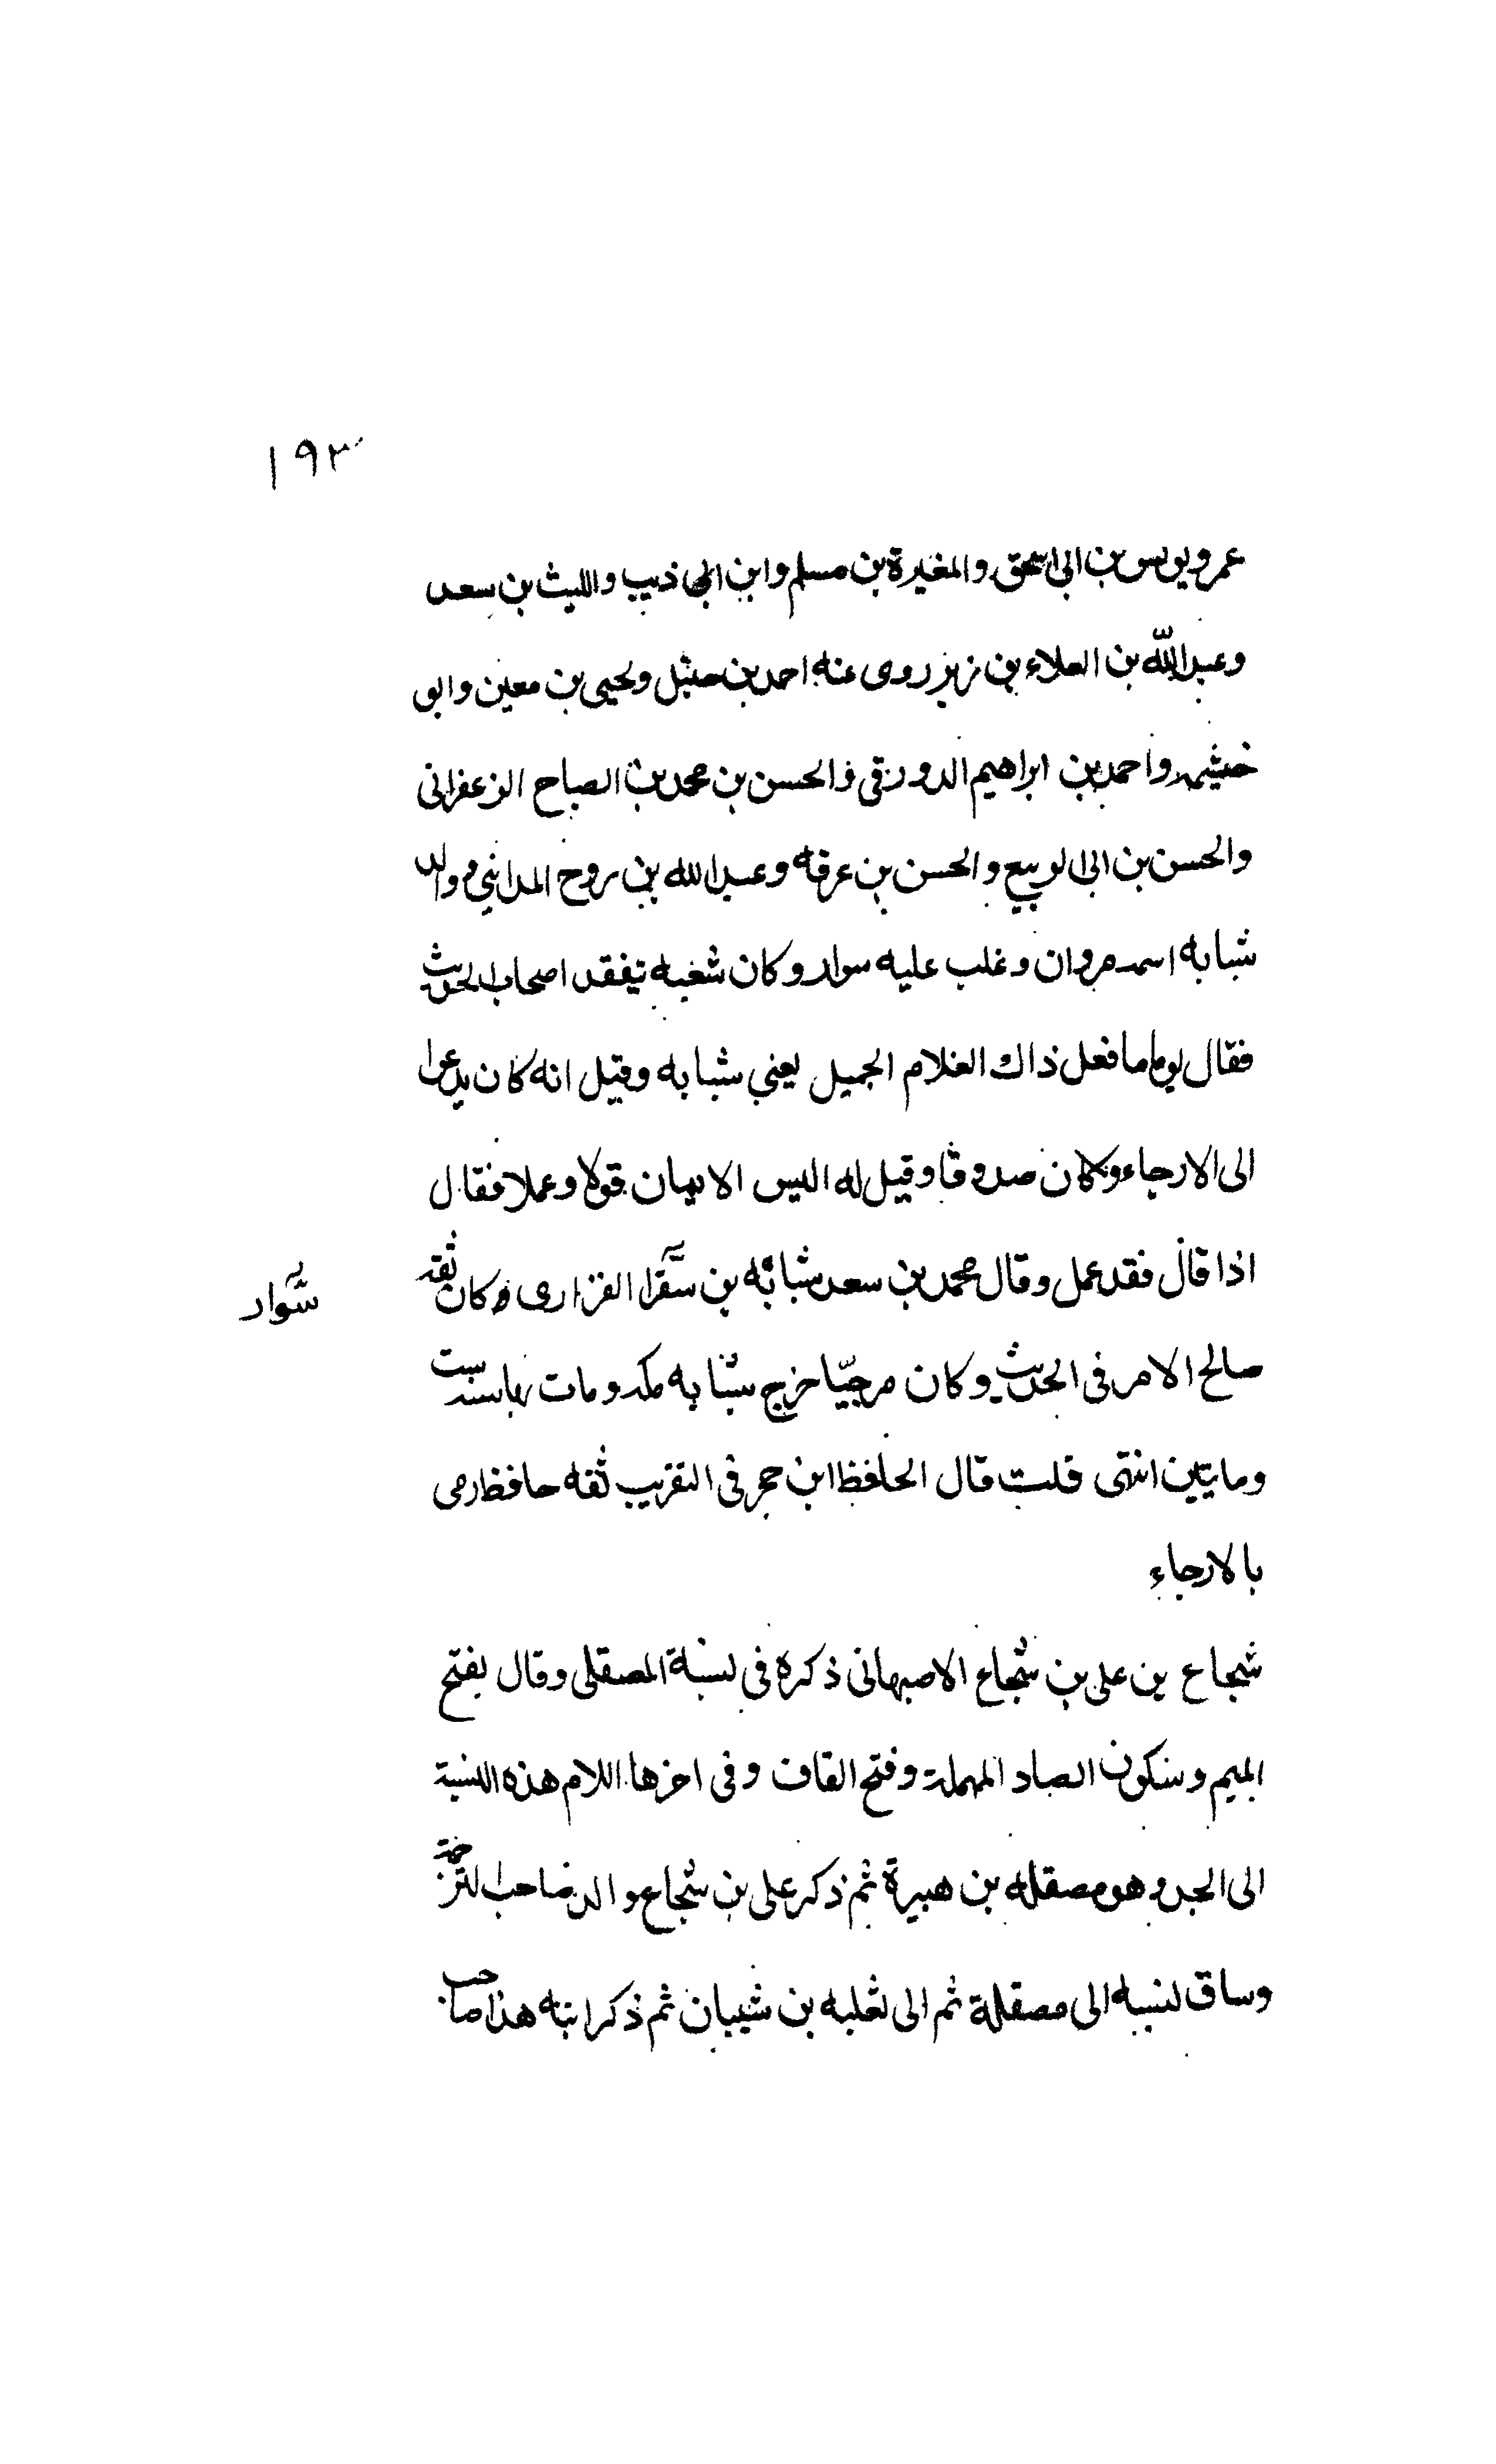 ١٩٣
عمرو يونس بن ابى اسحق والمغيرة بن مسلم وابن ابى ذيب والليث بن سعد
وعبد الله بن العلاء بن زبر روى عنه احمد بن حنبل ويحيى بن معين وابو
خيثمه واحمد بن ابراهيم الدورقى والحسن بن محمد بن الصباح الزعفرانى
والحسن بن ابى الربيع والحسن بن عرفه وعبد الله بن روح المداينى ووالد
شبابه اسمه مروان وغلب عليه سوار وكان شعبه يتفقد اصحاب الحديث
فقال يوما ما فعل ذاك الغلام الجميل يعنى شبابه وقيل انه كان يدعوا
الى الارجاء وكان صدوقا وقيل له اليس الايمان قولا وعملا فقال
اذا قال فقد عمل وقال محمد بن سعد شبابه بن سَّقرا الفزارى وكان ثقه
سَّوار
صالح الامر فى الحديث وكان مرجيّا خرج شبابه مكه ومات بها سنه ست
ومايتين انتهى قلت قال الحافظ ابن حجر فى التقريب ثقه حافظ رمى
بالارجاء
شجاع بن على بن شجاع الاصبهانى ذكره فى نسبة المصقلى وقال بفتح
الميم وسكون الصاد المهملة وفتح القاف وفى اخرها اللام هذه النسبة
الى الجد وهو مصقله بن هبيرة ثم ذكر على بن شجاع والد صاحب الترجمة
وساق نسبه الى مصقلة ثم الى ثعلبه بن شيبان ثم ذكر ابنه هذا صاحب